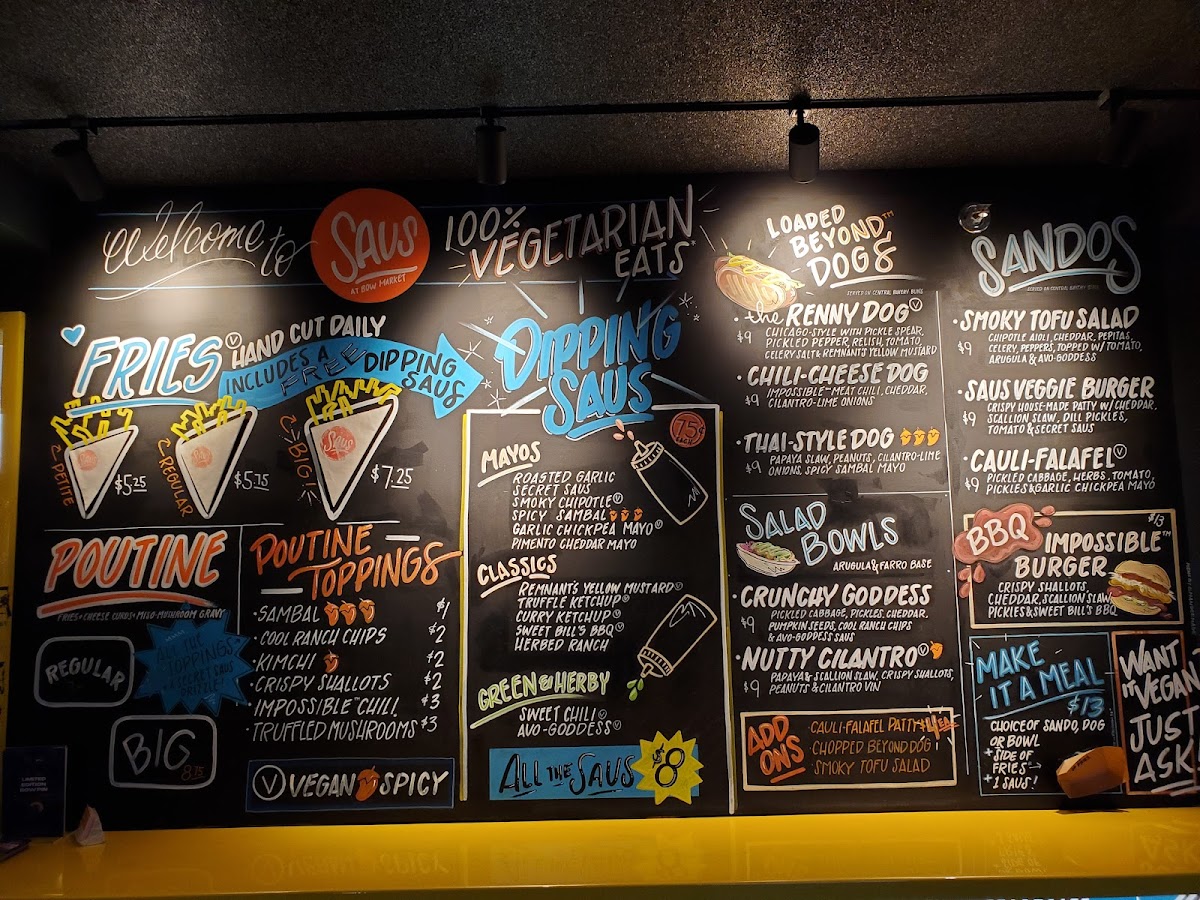 Welcome to
SAUS
AT BOW MARKET
100%
VEGETARIAN
EATS
FRIES Ⓥ
HAND CUT DAILY
INCLUDES A
FREE DIPPING
SAUS
PETITE
$5.25
REGULAR
$5.75
BIG!
Saus
$7.25
POUTINE
FRIES + CHEESE CURDS + MISO-MUSHROOM GRAVY
REGULAR
ALL THE
TOPPINGS
+ SECRET SAUS
DRIZZLE!
BIG
8.75
POUTINE
TOPPINGS
· SAMBAL $1
· COOL RANCH CHIPS $2
· KIMCHI $2
· CRISPY SHALLOTS $2
· IMPOSSIBLE™ CHILI $3
· TRUFFLED MUSHROOMS $3
Ⓥ VEGAN SPICY
the DIPPING
SAUS
75¢
EACH
MAYOS
ROASTED GARLIC
SECRET SAUS
SMOKY CHIPOTLE Ⓥ
SPICY SAMBAL
GARLIC CHICKPEA MAYO Ⓥ
PIMENTO CHEDDAR MAYO
CLASSICS
REMNANT'S YELLOW MUSTARD Ⓥ
TRUFFLE KETCHUP Ⓥ
CURRY KETCHUP Ⓥ
SWEET BILL'S BBQ Ⓥ
HERBED RANCH
GREEN & HERBY
SWEET CHILI Ⓥ
AVO-GODDESS Ⓥ
ALL THE SAUS $8
LOADED
BEYOND™
DOGS
SERVED ON CENTRAL BAKERY BUNS
· the RENNY DOG Ⓥ
$9 CHICAGO-STYLE WITH PICKLE SPEAR,
PICKLED PEPPER, RELISH, TOMATO,
CELERY SALT & REMNANT'S YELLOW MUSTARD
· CHILI-CHEESE DOG
$9 IMPOSSIBLE™ MEAT CHILI, CHEDDAR,
CILANTRO-LIME ONIONS
· THAI-STYLE DOG
$9 PAPAYA SLAW, PEANUTS, CILANTRO-LIME
ONIONS, SPICY SAMBAL MAYO
SALAD
BOWLS
ARUGULA & FARRO BASE
· CRUNCHY GODDESS
$9 PICKLED CABBAGE, PICKLES, CHEDDAR,
PUMPKIN SEEDS, COOL RANCH CHIPS
& AVO-GODDESS SAUS
· NUTTY CILANTRO Ⓥ
$9 PAPAYA & SCALLION SLAW, CRISPY SHALLOTS,
PEANUTS & CILANTRO VIN
ADD
ONS
· CAULI-FALAFEL PATTY +$4 EA.
· CHOPPED BEYOND DOG
· SMOKY TOFU SALAD
SANDOS
SERVED ON CENTRAL BAKERY BUNS
· SMOKY TOFU SALAD
$9 CHIPOTLE AIOLI, CHEDDAR, PEPITAS,
CELERY, PEPPERS, TOPPED W/ TOMATO,
ARUGULA & AVO-GODDESS
· SAUS VEGGIE BURGER
$9 CRISPY HOUSE-MADE PATTY W/ CHEDDAR,
SCALLION SLAW, DILL PICKLES,
TOMATO & SECRET SAUS
· CAULI-FALAFEL Ⓥ
$9 PICKLED CABBAGE, HERBS, TOMATO,
PICKLES & GARLIC CHICKPEA MAYO
$13
BBQ IMPOSSIBLE™
BURGER
CRISPY SHALLOTS,
CHEDDAR, SCALLION SLAW
PICKLES & SWEET BILL'S BBQ
MAKE
IT A MEAL
$13
CHOICE OF SANDO, DOG
OR BOWL
+ SIDE OF
FRIES
+ 1 SAUS!
WANT
IT VEGAN?
JUST
ASK!
LIMITED
EDITION